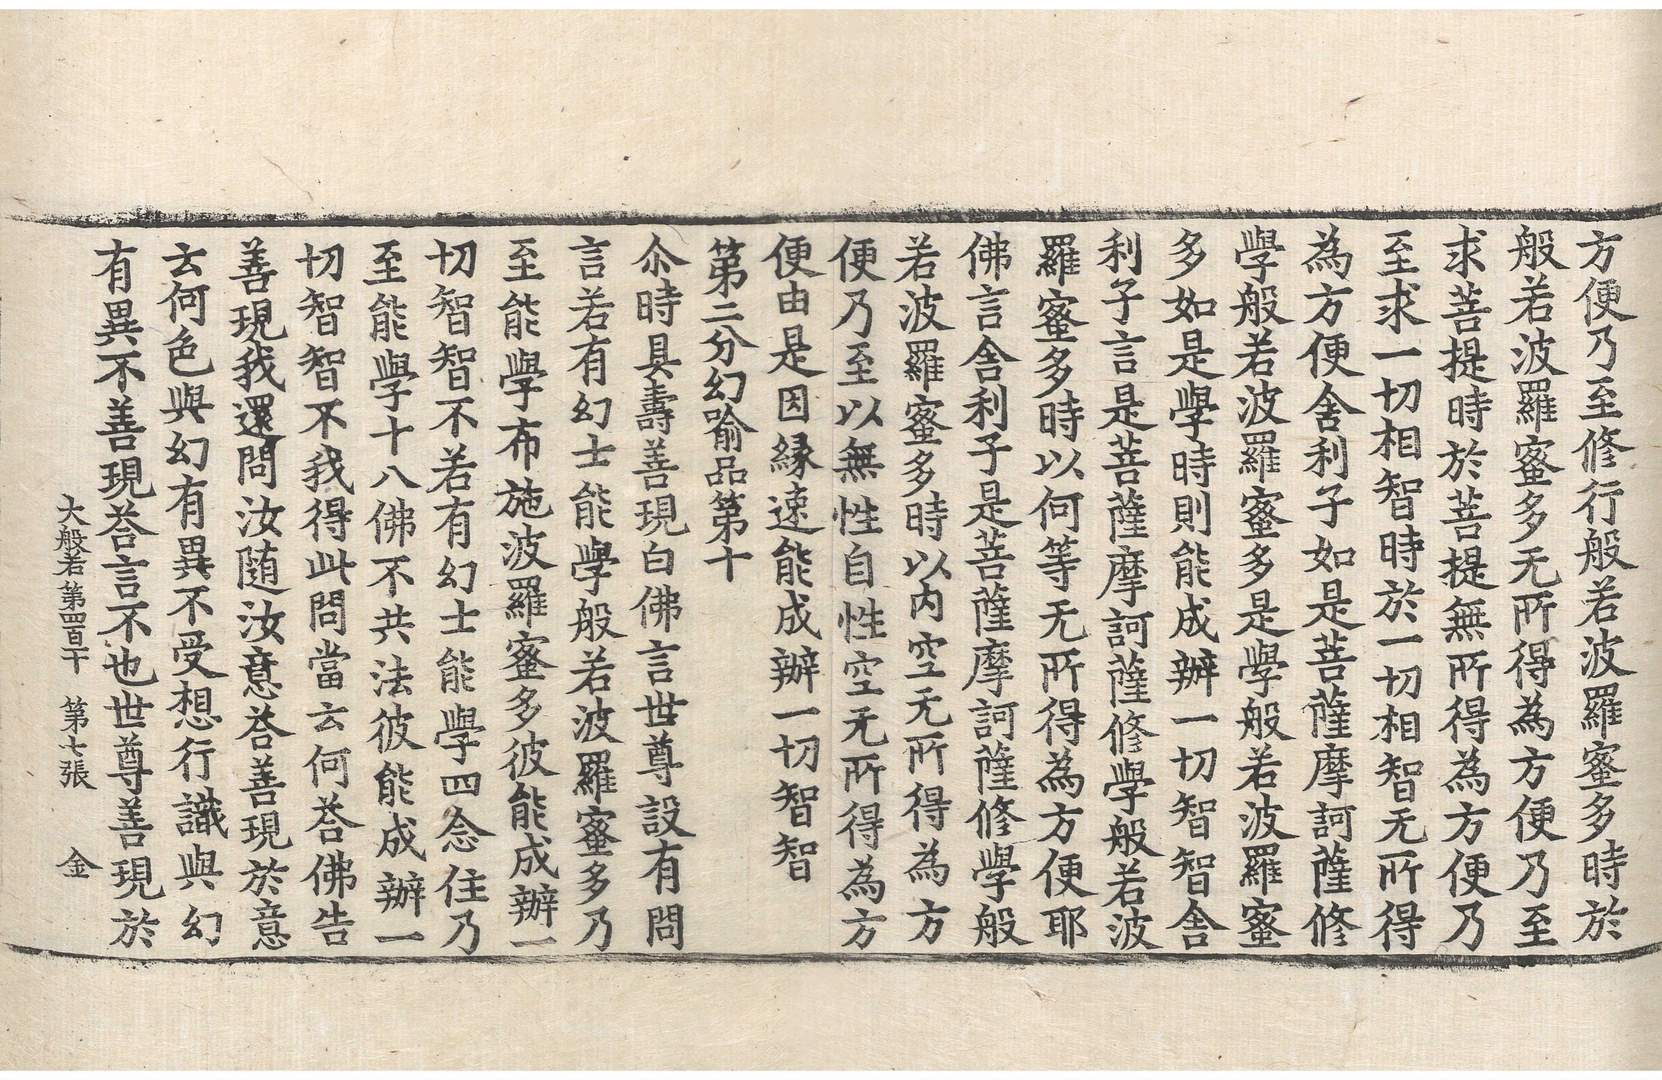 方便乃至修行般若波羅蜜多時於
般若波羅蜜多无所得為方便乃至
求菩提時於菩提無所得為方便乃
至求一切相智時於一切相智无所得
為方便舍利子如是菩薩摩訶薩修
學般若波羅蜜多是學般若波羅蜜
多如是學時則能成辦一切智智舍
利子言是菩薩摩訶薩修學般若波
羅蜜多時以何等无所得為方便耶
佛言舍利子是菩薩摩訶薩修學般
若波羅蜜多時以內空无所得為方
便乃至以無性自性空无所得為方
便由是因緣速能成辦一切智智
第二分幻喻品第十
尒時具壽善現白佛言世尊設有問
言若有幻士能學般若波羅蜜多乃
至能學布施波羅蜜多彼能成辦一
切智智不若有幻士能學四念住乃
至能學十八佛不共法彼能成辦一
切智智不我得此問當云何荅佛告
善現我還問汝隨汝意荅善現於意
云何色與幻有異不受想行識與幻
有異不善現荅言不也世尊善現於
大般若第四百十 第七張 金